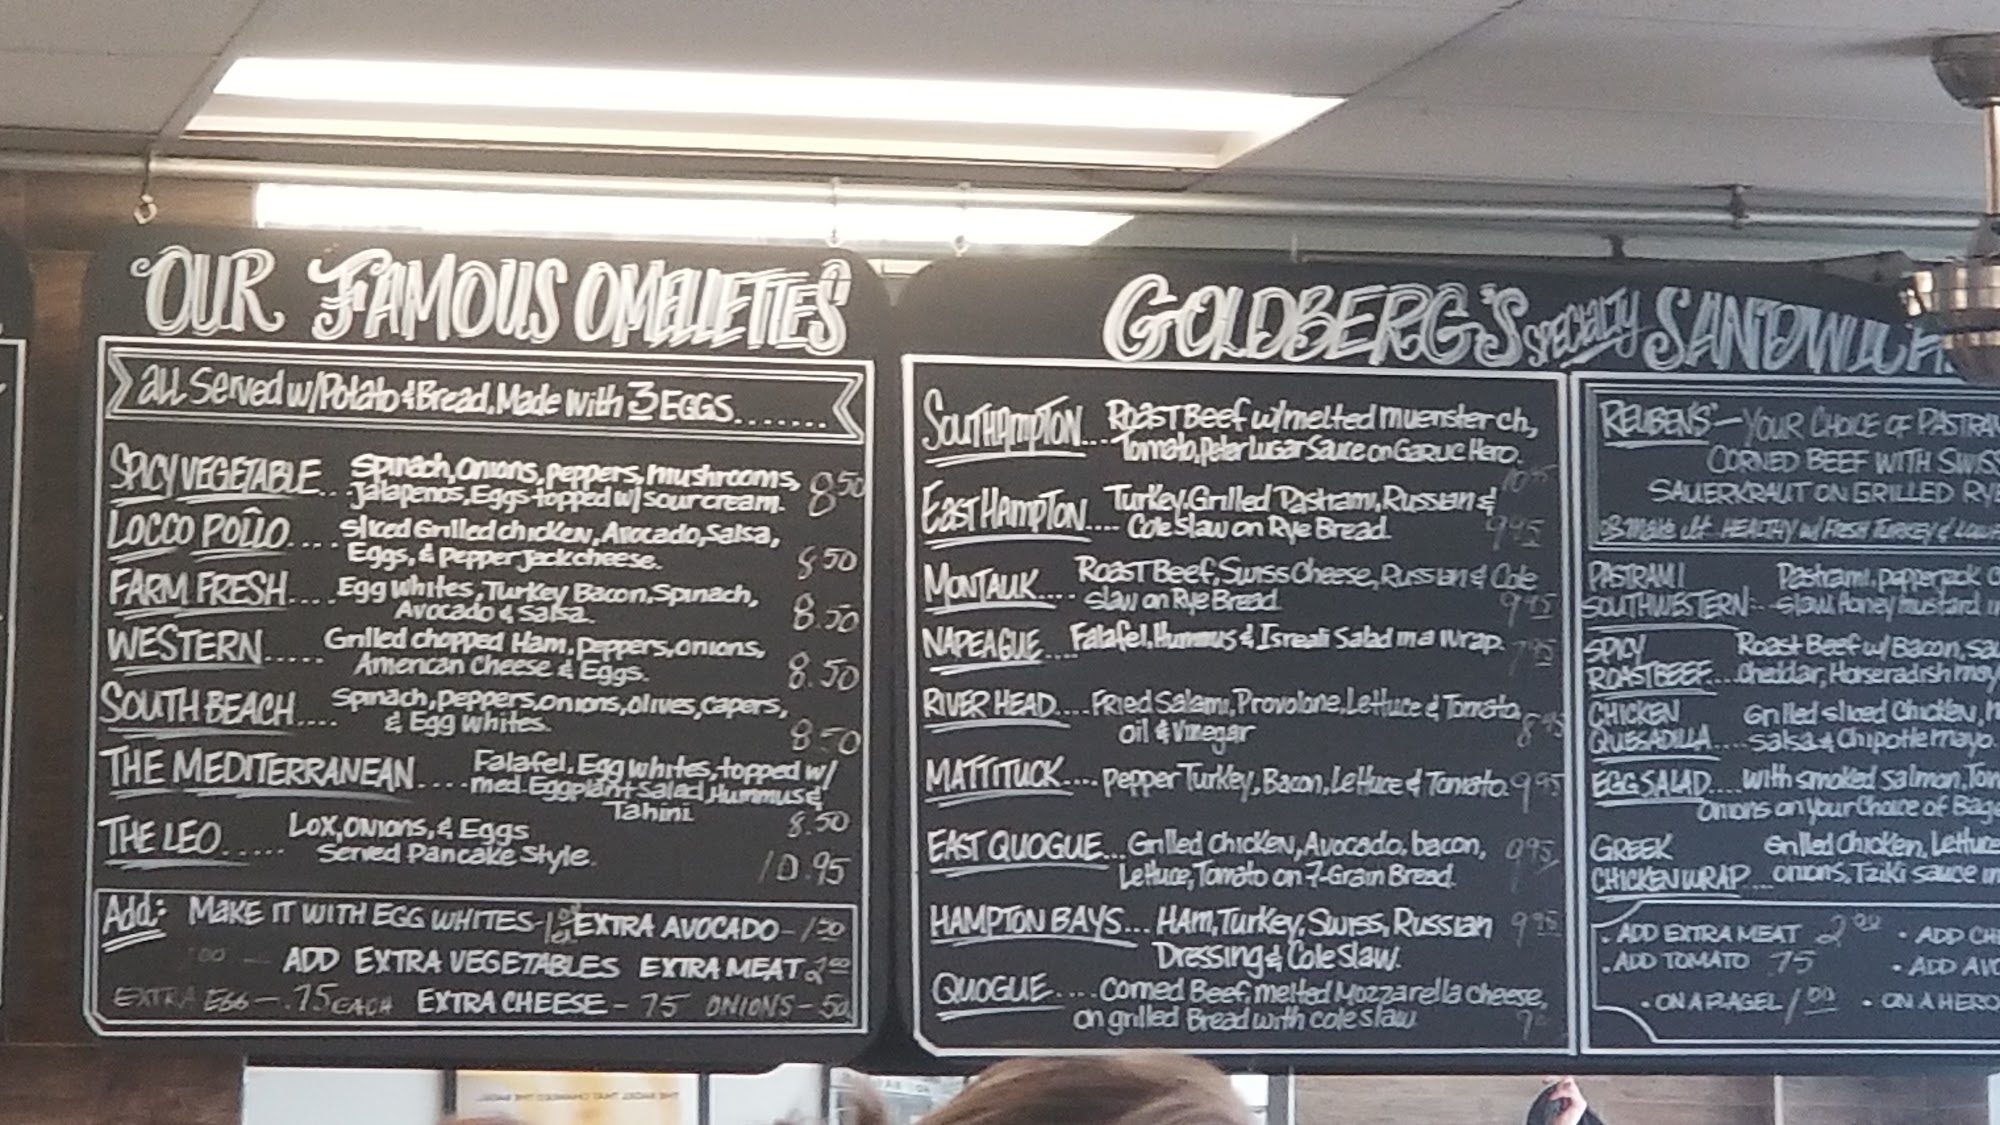 OUR FAMOUS OMELLETTES
all Served w/Potato & Bread. Made with 3 EGGS........
SPICY VEGETABLE.. Spinach, onions, peppers, mushrooms,
jalapenos, Eggs topped w/ sour cream. 8 50
LOCCO POLLO.... Sliced Grilled chicken, Avocado, Salsa,
Eggs, & Pepper Jack cheese. 8 50
FARM FRESH.... Egg whites, Turkey Bacon, Spinach,
Avocado & Salsa. 8.50
WESTERN..... Grilled chopped Ham, peppers, onions,
American Cheese & Eggs. 8.50
SOUTH BEACH.... Spinach, peppers, onions, olives, capers,
& Egg whites. 8.50
THE MEDITERRANEAN.... Falafel, Egg whites, topped w/
med. Eggplant Salad, Hummus &
Tahini. 8.50
THE LEO..... Lox, onions, & Eggs
Served Pancake Style. 10.95
Add: MAKE IT WITH EGG WHITES- EXTRA AVOCADO- 1 50
ADD EXTRA VEGETABLES EXTRA MEAT 2 00
EXTRA EGG - .75 EACH EXTRA CHEESE - 75 ONIONS - 50
GOLDBERG'S SPECIALTY
SOUTHAMPTON.... Roast Beef w/melted muenster ch,
Tomato, Peter Lugar Sauce on Garlic Hero.
EAST HAMPTON.... Turkey, Grilled Pastrami, Russian &
Cole slaw on Rye Bread. 9 95
MONTAUK.... Roast Beef, Swiss Cheese, Russian & Cole
slaw on Rye Bread. 9 95
NAPEAGUE.... Falafel, Hummus & Isreali Salad in a wrap. 7 95
RIVER HEAD.... Fried Salami, Provolone, Lettuce & Tomato,
oil & Vinegar 8 95
MATTITUCK.... Pepper Turkey, Bacon, Lettuce & Tomato. 9 95
EAST QUOGUE... Grilled Chicken, Avocado, bacon,
Lettuce, Tomato on 7-Grain Bread. 9 95
HAMPTON BAYS... Ham, Turkey, Swiss, Russian
Dressing & Cole Slaw. 9 95
QUOGUE.... Corned Beef, melted Mozzarella cheese,
on grilled Bread with cole slaw.
REUBEN'S - YOUR CHOICE OF
CORNED BEEF WITH
SAUERKRAUT ON GRILLED
Make it HEALTHY w/ FRESH TURKEY &
PASTRAMI Pastrami, pepperjack
SOUTHWESTERN.. slaw, honey mustard
SPICY Roast Beef w/ Bacon,
ROAST BEEF... cheddar, Horseradish
CHICKEN Grilled sliced Chicken,
QUESADILLA.... salsa & Chipotle mayo.
EGG SALAD.... with smoked salmon,
onions on your Choice of
GREEK Grilled Chicken,
CHICKEN WRAP... onions, Tziki sauce
• ADD EXTRA MEAT 2 00 • ADD
• ADD TOMATO .75 • ADD
• ON A FLAGEL 1 00 • ON A HERO